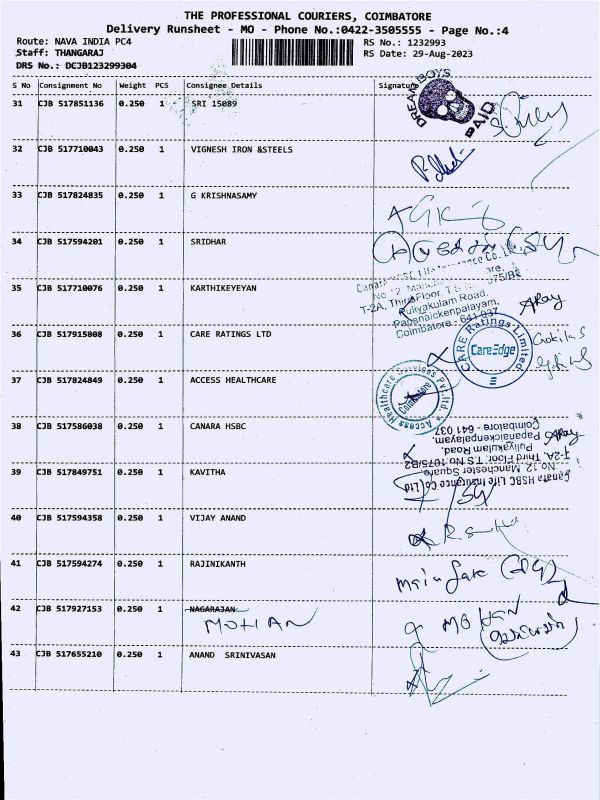 THE PROFESSIONAL COURIERS, COIMBATORE
Delivery Runsheet - MO - Phone No.:0422-3505555 - Page No.:4
Route: NAVA INDIA PC4 RS No.: 1232993
Staff: THANGARAJ RS Date: 29-Aug-2023
DRS No.: DCJB123299304
S No Consignment No Weight PCS Consignee Details Signature
31 CJB 517851136 0.250 1 SRI 15089
DREAM BOYS
PAID
32 CJB 517710043 0.250 1 VIGNESH IRON &STEELS
33 CJB 517824835 0.250 1 G KRISHNASAMY
34 CJB 517594201 0.250 1 SRIDHAR
35 CJB 517710076 0.250 1 KARTHIKEYEYAN
Canara HSBC Life Insurance Co. Ltd
No 12, Manchester Square,
T-2A, Third Floor, T.S No 1075/B2
Puliyakulam Road,
Papanaickenpalayam,
Coimbatore - 641 037
36 CJB 517915808 0.250 1 CARE RATINGS LTD
CARE Ratings Limited
CareEdge
Gokila S
37 CJB 517824849 0.250 1 ACCESS HEALTHCARE
Access Healthcare Services Pvt.ltd.
Coimbatore
38 CJB 517586038 0.250 1 CANARA HSBC
Canara HSBC Life Insurance Co Ltd
No.12, Manchester Square,
T-2A, Third Floor, T.S No.1075/B2
Puliyakulam Road,
Papanaickenpalayam,
Coimbatore - 641 037
39 CJB 517849751 0.250 1 KAVITHA
40 CJB 517594358 0.250 1 VIJAY ANAND
41 CJB 517594274 0.250 1 RAJINIKANTH
main gate
42 CJB 517927153 0.250 1 NAGARAJAN
MOHAN
MOHAN
43 CJB 517655210 0.250 1 ANAND SRINIVASAN